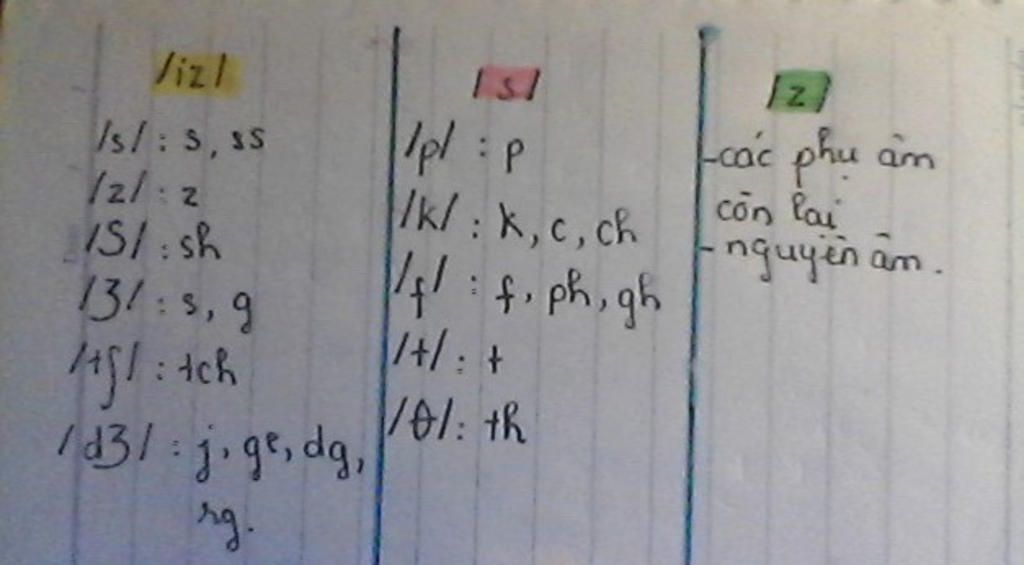 /iz/
/s/ : s, ss
/z/ : z
/S/ : sh
/ʒ/ : s, g
/tʃ/ : tch
/dʒ/ : j, ge, dg,
rg.
/s/
/p/ : p
/k/ : k, c, ch
/f/ : f, ph, gh
/t/ : t
/θ/ : th
/z/
- các phụ âm
còn lại
- nguyên âm.